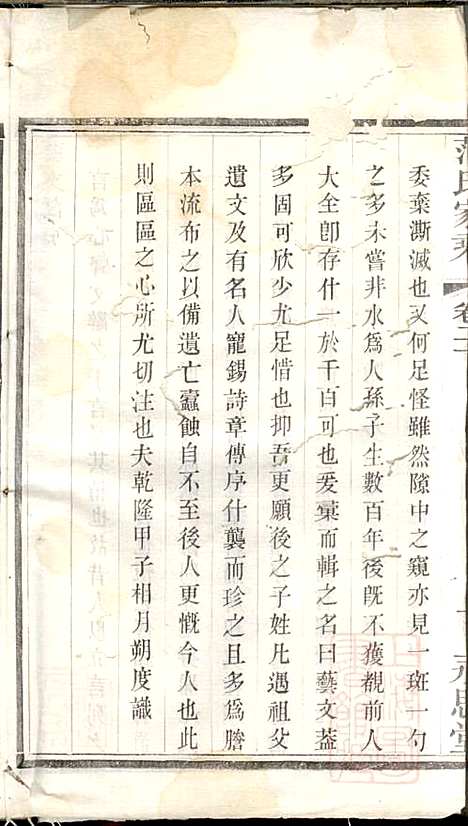 氏家乘 卷二十
委棄澌滅也又何足怪雖然隙中之窺亦見一斑一勺
之多未嘗非水為人孫子生數百年後旣不獲覩前人
大全卽存什一於千百可也爰彙而輯之名曰藝文葢
多固可欣少尤足惜也抑吾更願後之子姓凡遇祖父
遺文及有名人寵錫詩章傳序什襲而珍之且多為謄
本流布之以備遺亡蠧蝕自不至後人更慨今人也此
則區區之心所尤切注也夫乾隆甲子相月朔度識